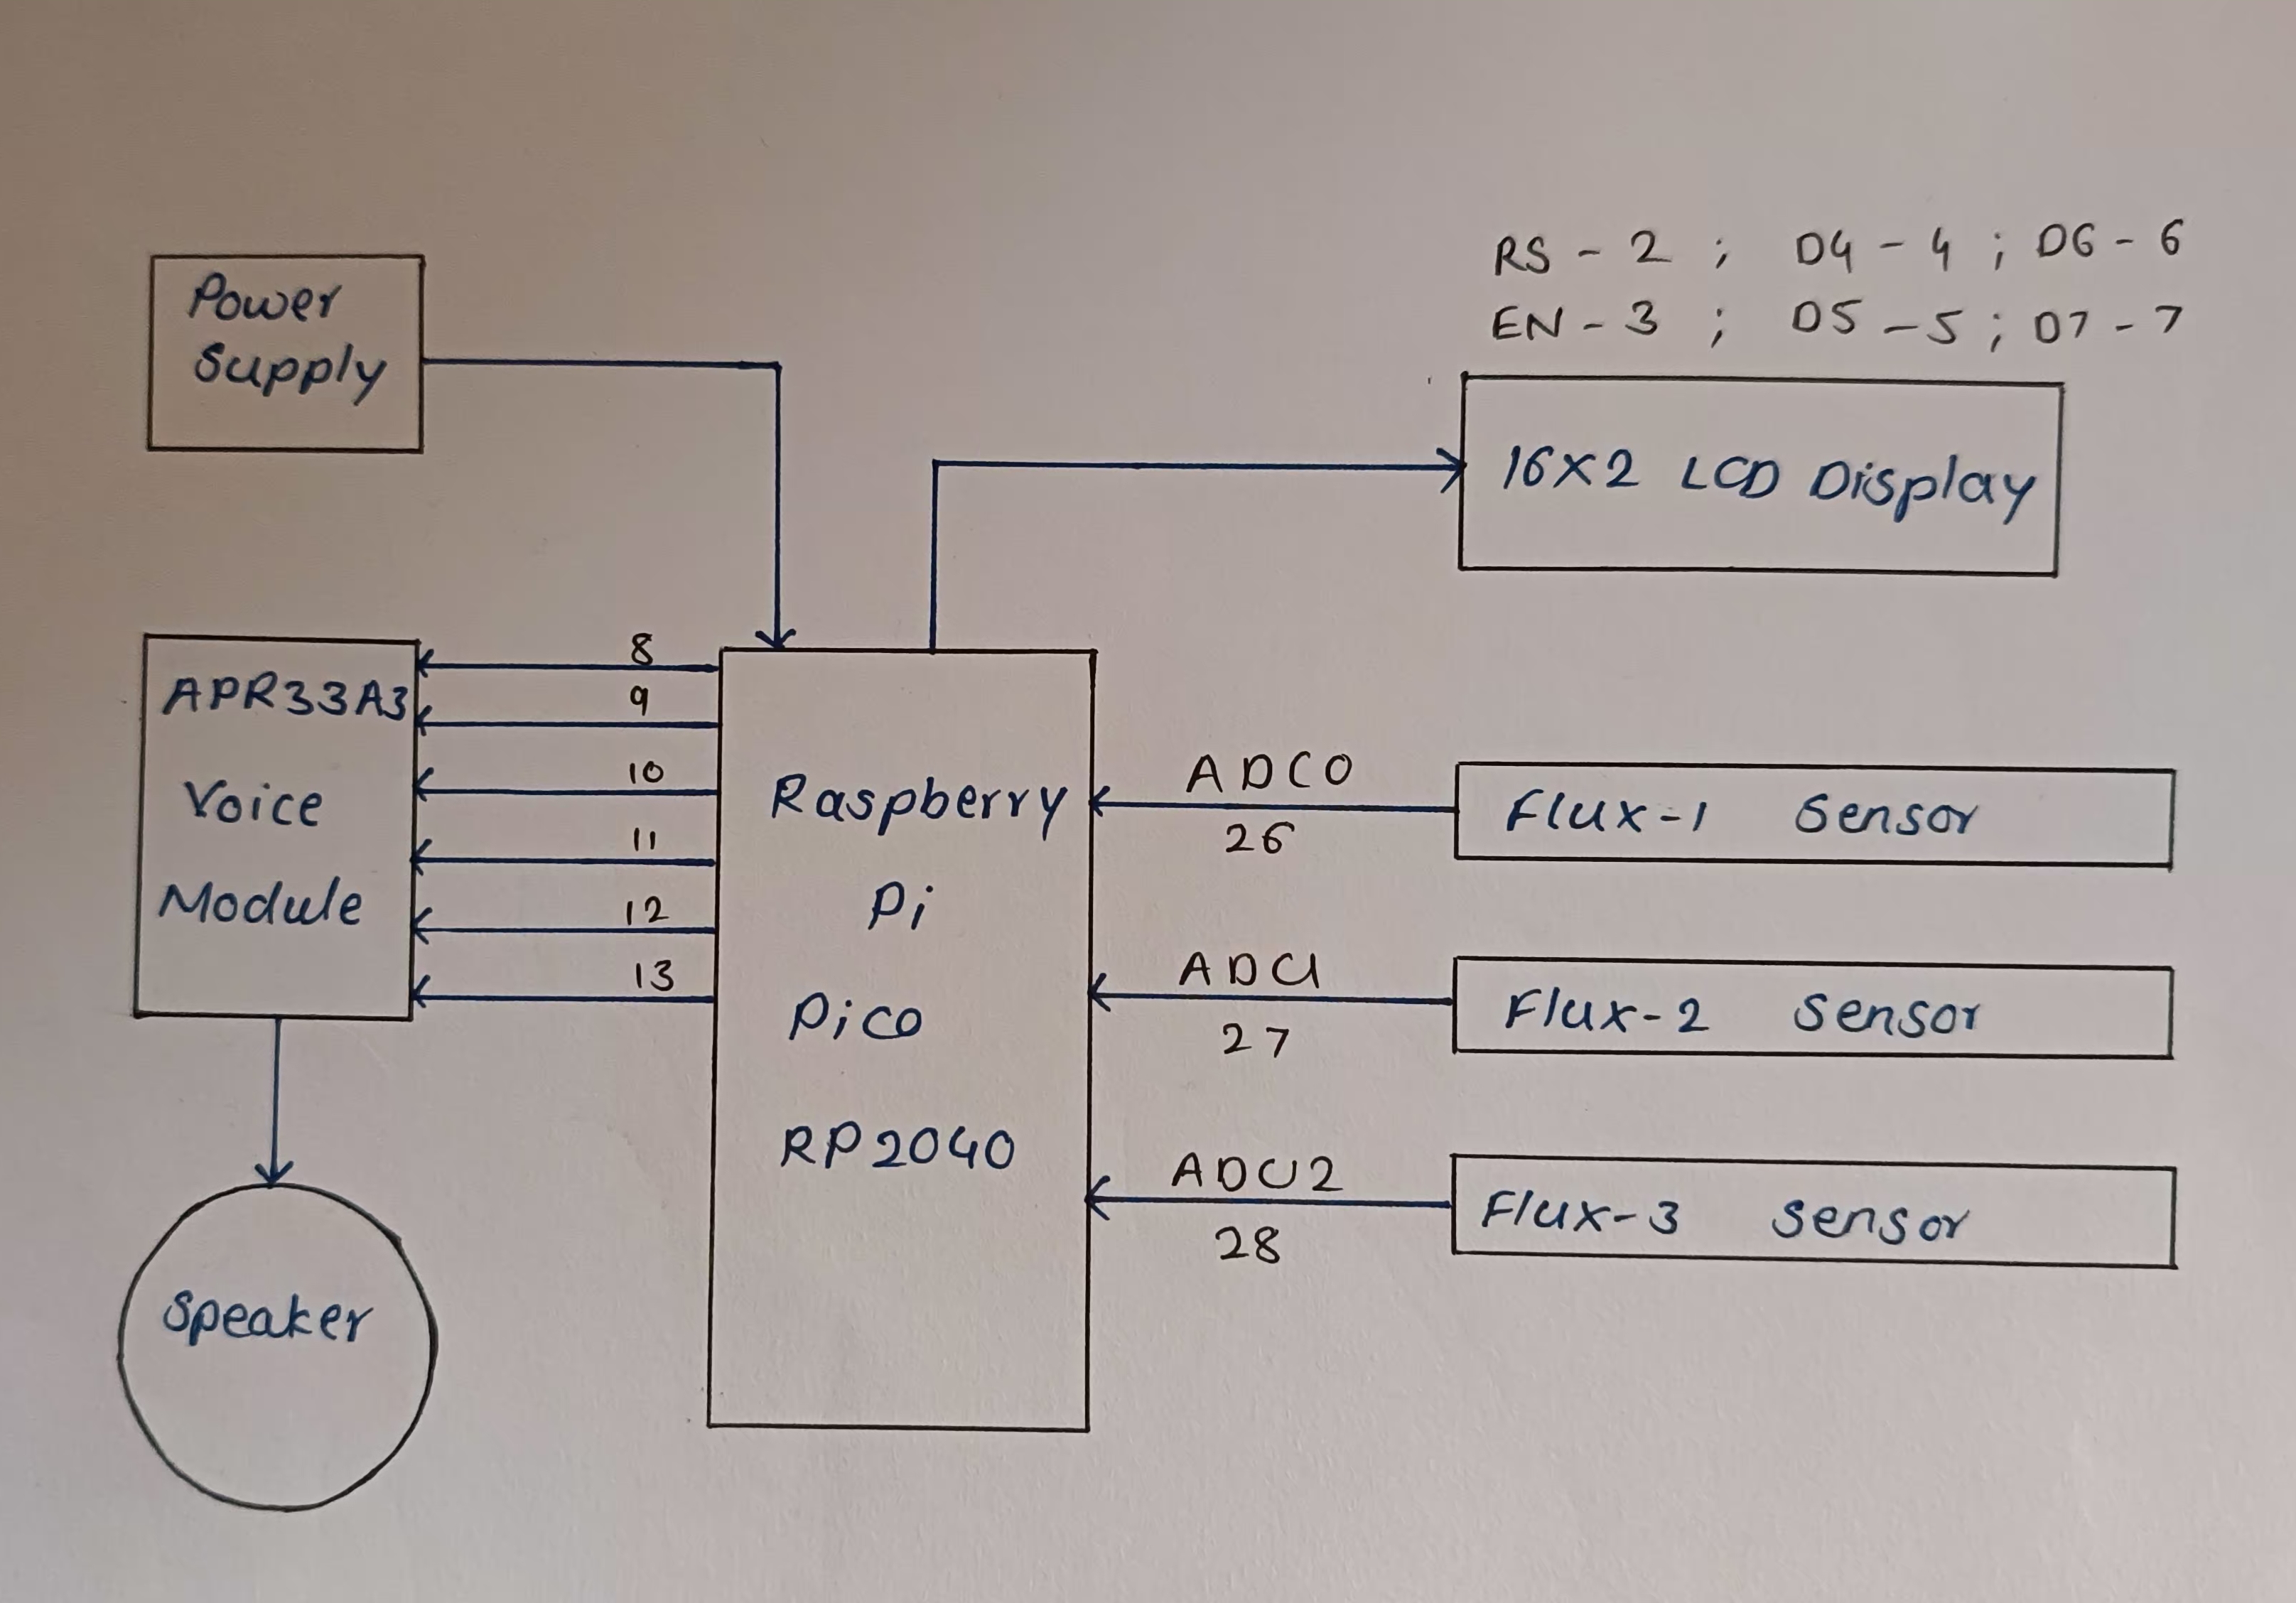 RS - 2 ; D4 - 4 ; D6 - 6
EN - 3 ; D5 - 5 ; D7 - 7
Power
Supply
16X2 LCD Display
8
9
10
11
12
13
APR33A3
Voice
Module
Raspberry
Pi
Pico
RP2040
ADC0
26
Flux-1 Sensor
ADC1
27
Flux-2 Sensor
ADC2
28
Flux-3 Sensor
Speaker